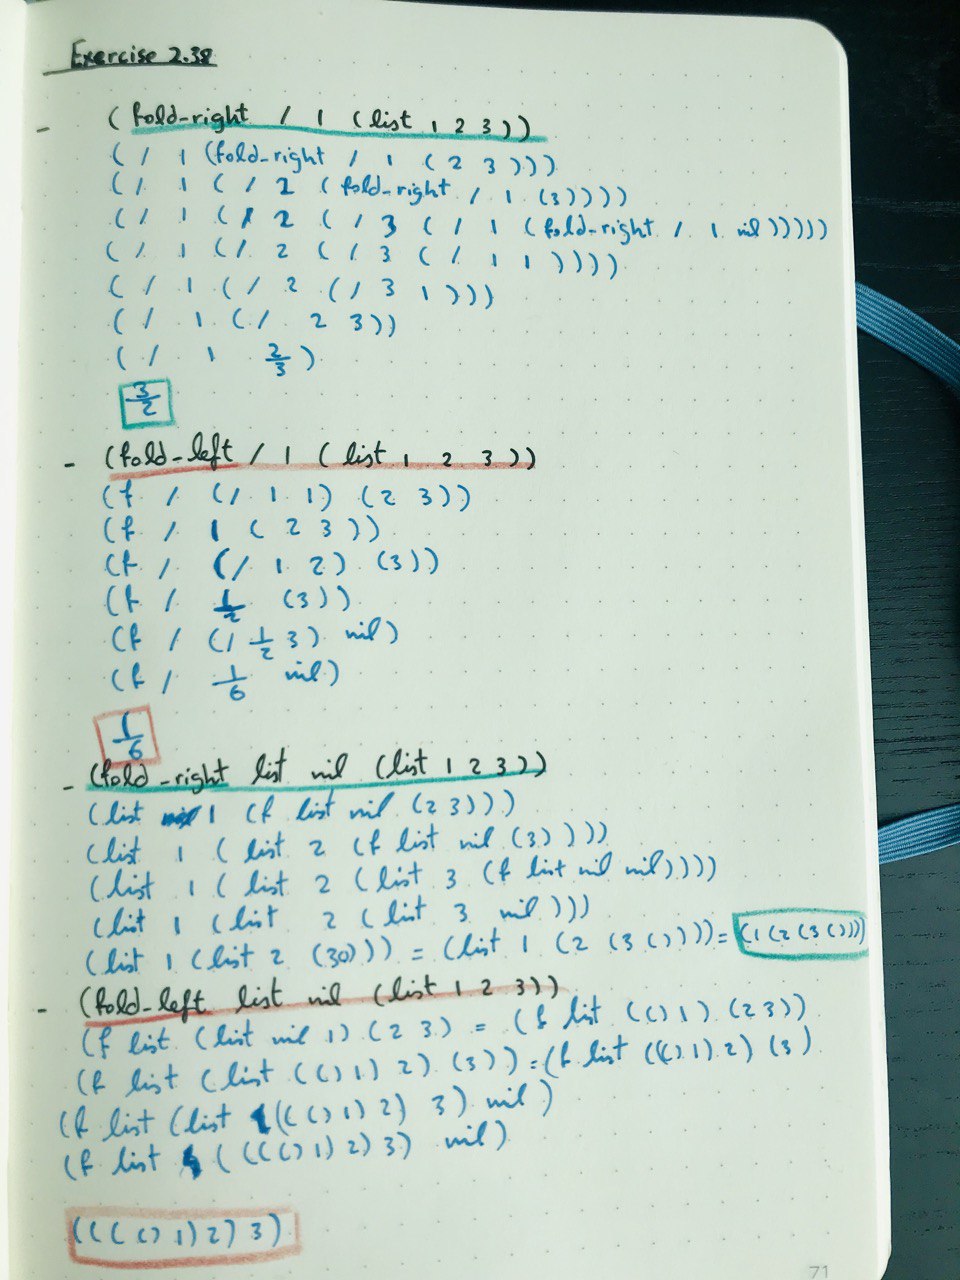 Exercise 2.38
- (fold-right / 1 (list 1 2 3))
(/ 1 (fold-right / 1 (2 3)))
(/ 1 (/ 2 (fold-right / 1 (3))))
(/ 1 (/ 2 (/ 3 (/ 1 (fold-right / 1 nil)))))
(/ 1 (/ 2 (/ 3 (/ 1 1))))
(/ 1 (/ 2 (/ 3 1)))
(/ 1 (/ 2 3))
(/ 1 2/3)
3/2
- (fold-left / 1 (list 1 2 3))
(f / (/ 1 1) (2 3))
(f / 1 (2 3))
(f / (/ 1 2) (3))
(f / 1/2 (3))
(f / (/ 1/2 3) nil)
(f / 1/6 nil)
1/6
- (fold-right list nil (list 1 2 3))
(list 1 (f list nil (2 3)))
(list 1 (list 2 (f list nil (3))))
(list 1 (list 2 (list 3 (f list nil nil))))
(list 1 (list 2 (list 3 nil)))
(list 1 (list 2 (3()))) = (list 1 (2 (3 ()))) = (1 (2 (3 ())))
- (fold-left list nil (list 1 2 3))
(f list (list nil 1) (2 3) = (f list (() 1) (2 3))
(f list (list (() 1) 2) (3)) = (f list ((() 1) 2) (3)
(f list (list ((() 1) 2) 3) nil)
(f list ((((() 1) 2) 3) nil)
(((() 1) 2) 3)
71